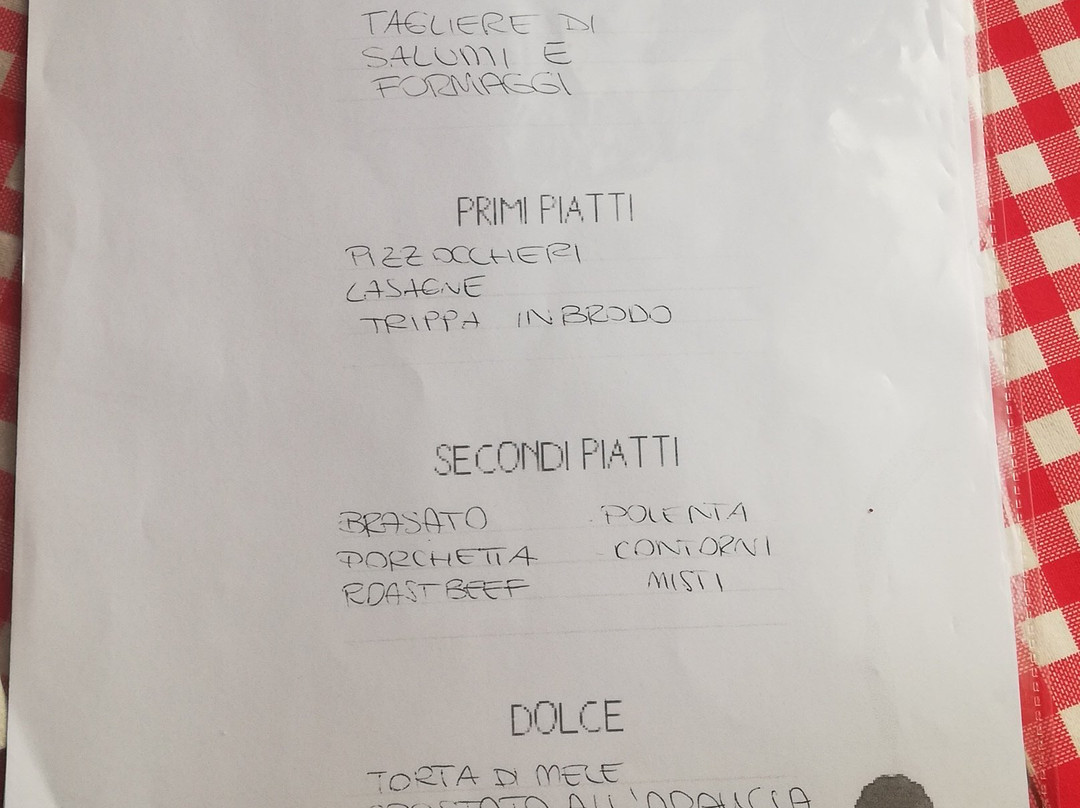 TAGLIERE DI
SALUMI E
FORMAGGI
PRIMI PIATTI
PIZZOCCHERI
LASAGNE
TRIPPA IN BRODO
SECONDI PIATTI
BRASATO POLENTA
PORCHETTA CONTORNI
ROAST BEEF MISTI
DOLCE
TORTA DI MELE
ALL'ARANCIA